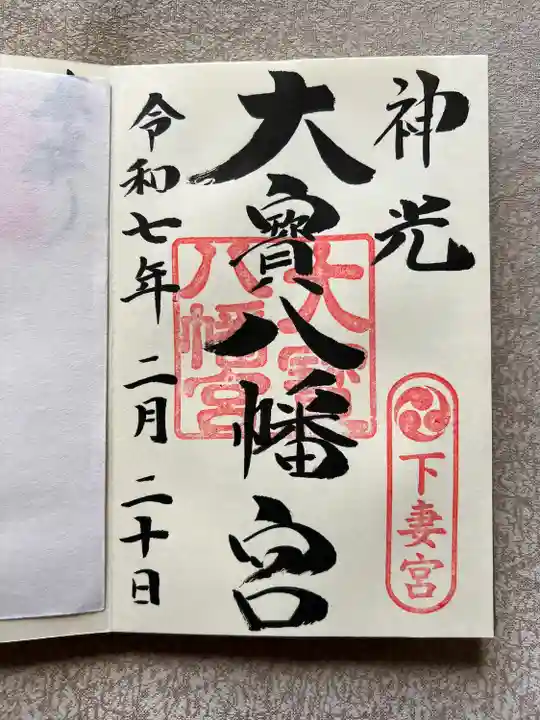 神光
下妻宮
大寳八幡宮
大寳
八幡宮
令和七年 二月 二十日